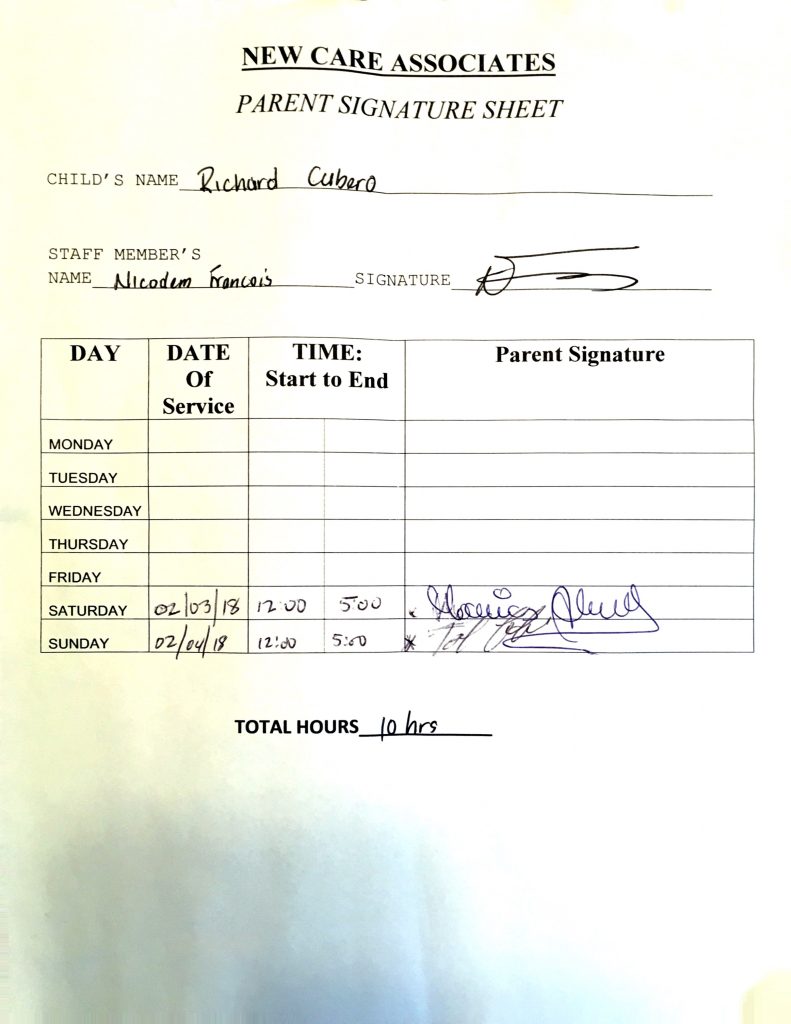 NEW CARE ASSOCIATES
PARENT SIGNATURE SHEET
CHILD'S NAME Richard Cubero
STAFF MEMBER'S
NAME Nicodem Francois SIGNATURE
DAY DATE Of Service TIME: Start to End Parent Signature
MONDAY
TUESDAY
WEDNESDAY
THURSDAY
FRIDAY
SATURDAY 02/03/18 12:00 5:00
SUNDAY 02/04/18 12:00 5:00
TOTAL HOURS 10 hrs